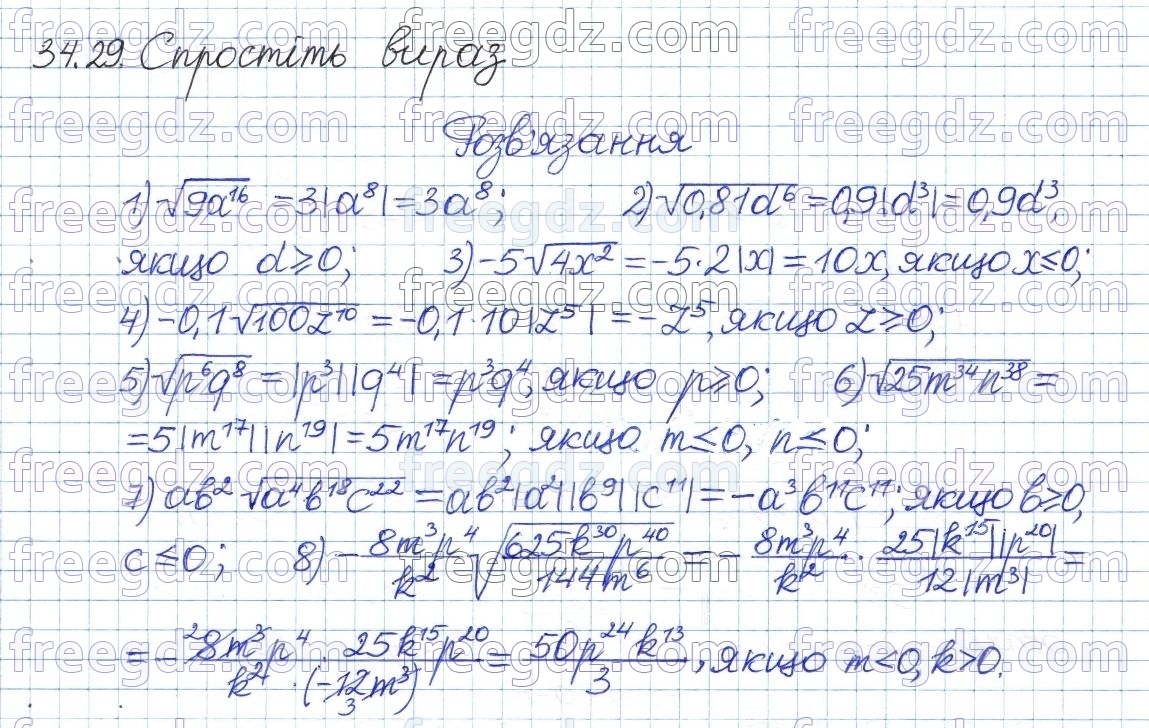 34.29. Спростіть вираз
Розв'язання
1) √9a¹⁶ = 3|a⁸| = 3a⁸; 2) √0,81d⁶ = 0,9|d³| = 0,9d³,
якщо d ≥ 0; 3) -5√4x² = -5·2|x| = 10x, якщо x ≤ 0;
4) -0,1√100z¹⁰ = -0,1·10|z⁵| = -z⁵, якщо z ≥ 0;
5) √p⁶q⁸ = |p³||q⁴| = p³q⁴, якщо p ≥ 0; 6) √25m³⁴n³⁸ =
= 5|m¹⁷||n¹⁹| = 5m¹⁷n¹⁹; якщо m ≤ 0, n ≤ 0;
7) ab² √a⁴b¹⁸c²² = ab²|a²||b⁹||c¹¹| = -a³b¹¹c¹¹; якщо b ≥ 0,
c ≤ 0; 8) - 8m³p⁴/k² √625k³⁰p⁴⁰/144m⁶ = - 8m³p⁴/k² · 25|k¹⁵||p²⁰|/12|m³| =
= - ²8m³p⁴ · 25k¹⁵p²⁰/k² · (-12₃m³) = 50p²⁴k¹³/3, якщо m < 0, k > 0.
freegdz.com